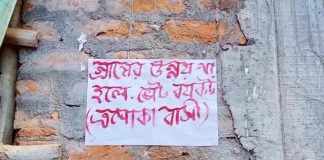 গ্রামের উন্নয়ন না
হলে ভোট বয়কট
(এলাকা বাসী)